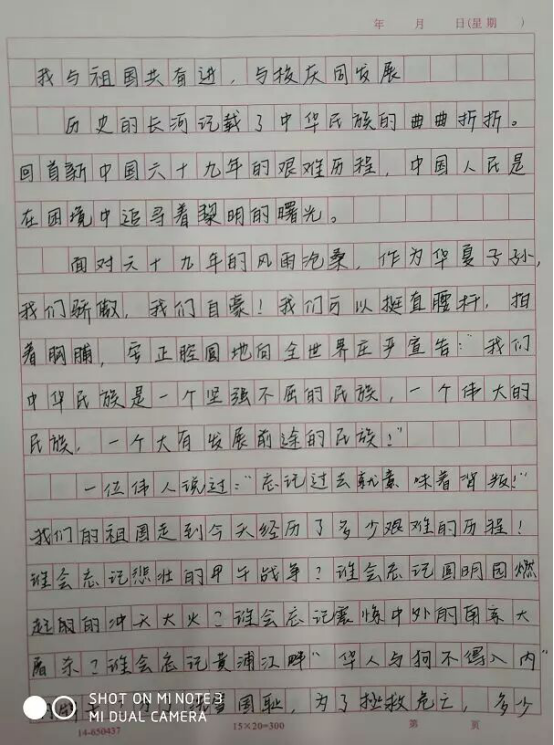 年 月 日(星期 )
我与祖国共奋进，与校庆同发展
历史的长河记载了中华民族的曲曲折折。
回首新中国六十九年的艰难历程，中国人民是
在困境中追寻着黎明的曙光。
面对六十九年的风雨沧桑，作为华夏子孙，
我们骄傲，我们自豪！我们可以挺直腰杆，拍
着胸脯，字正腔圆地向全世界庄严宣告："我们
中华民族是一个坚强不屈的民族，一个伟大的
民族，一个大有发展前途的民族！"
一位伟人说过："忘记过去就意味着背叛！"
我们的祖国走到今天经历了多少艰难的历程！
谁会忘记悲壮的甲午战争？谁会忘记圆明园燃
起的的冲天大火？谁会忘记震惊中外的南京大
屠杀？谁会忘记黄浦江畔"华人与狗不得入内"
国耻，为了拯救危亡，多少
SHOT ON MI NOTE 3
MI DUAL CAMERA
14-050437 15×20=300 第 页